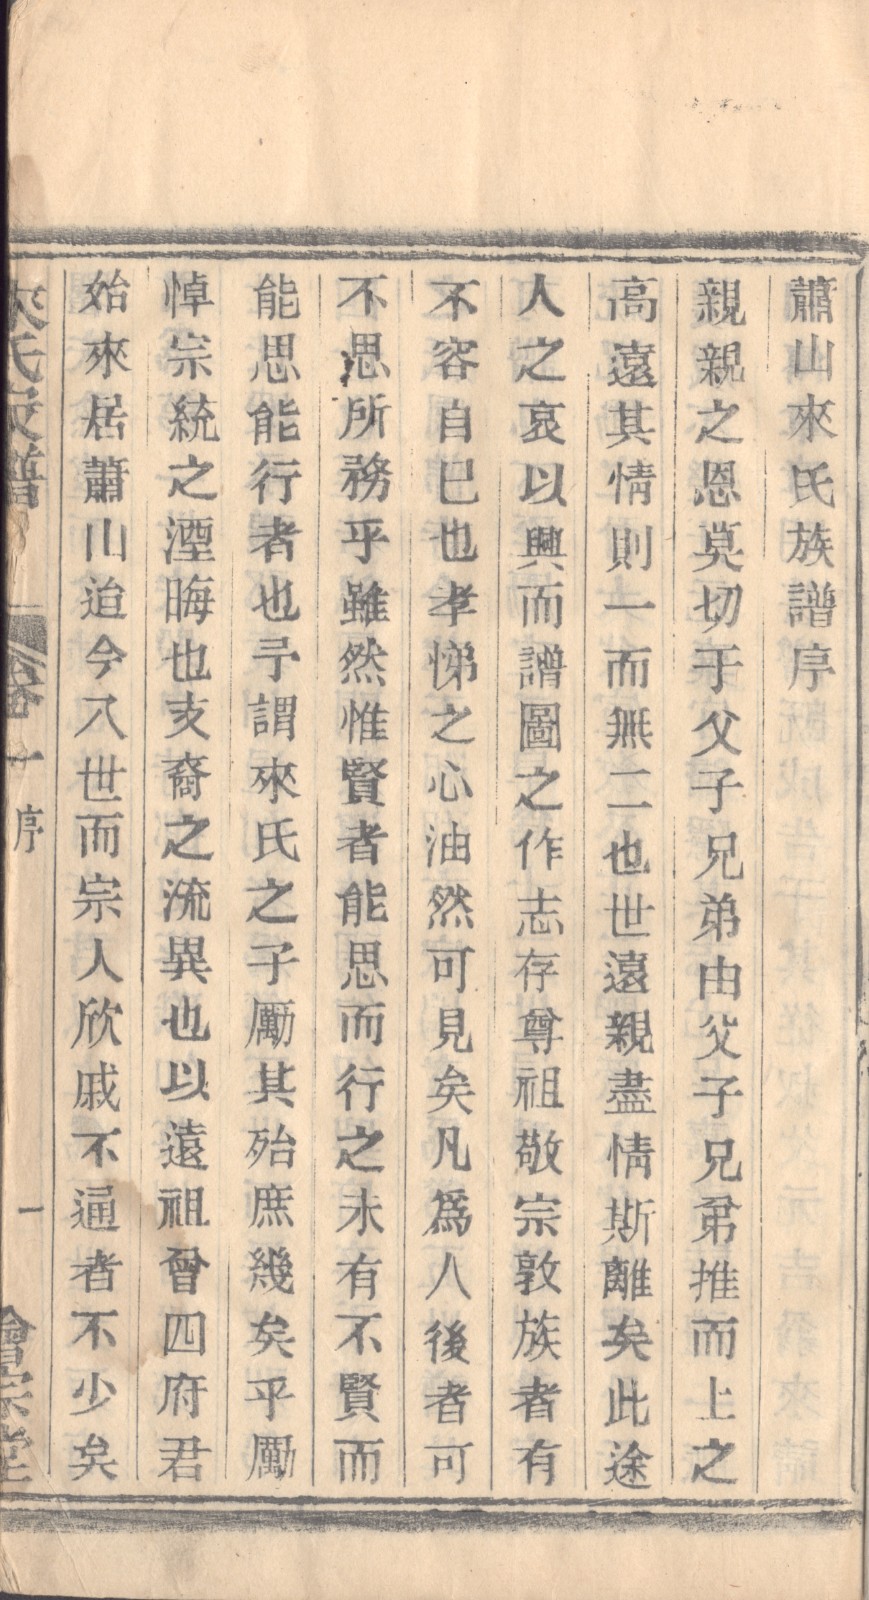 蕭山來氏族譜序
親親之恩莫切于父子兄弟由父子兄弟推而上之
高遠其情則一而無二也世遠親盡情斯離矣此途
人之哀以興而譜圖之作志存尊祖敬宗敦族者有
不容自巳也孝悌之心油然可見矣凡爲人後者可
不思所務乎雖然惟賢者能思而行之未有不賢而
能思能行者也予謂來氏之子勵其殆庶幾矣乎勵
悼宗統之湮晦也支裔之流異也以遠祖曾四府君
始來居蕭山迨今八世而宗人欣戚不通者不少矣
來氏家譜 卷一 序 一 會宗堂